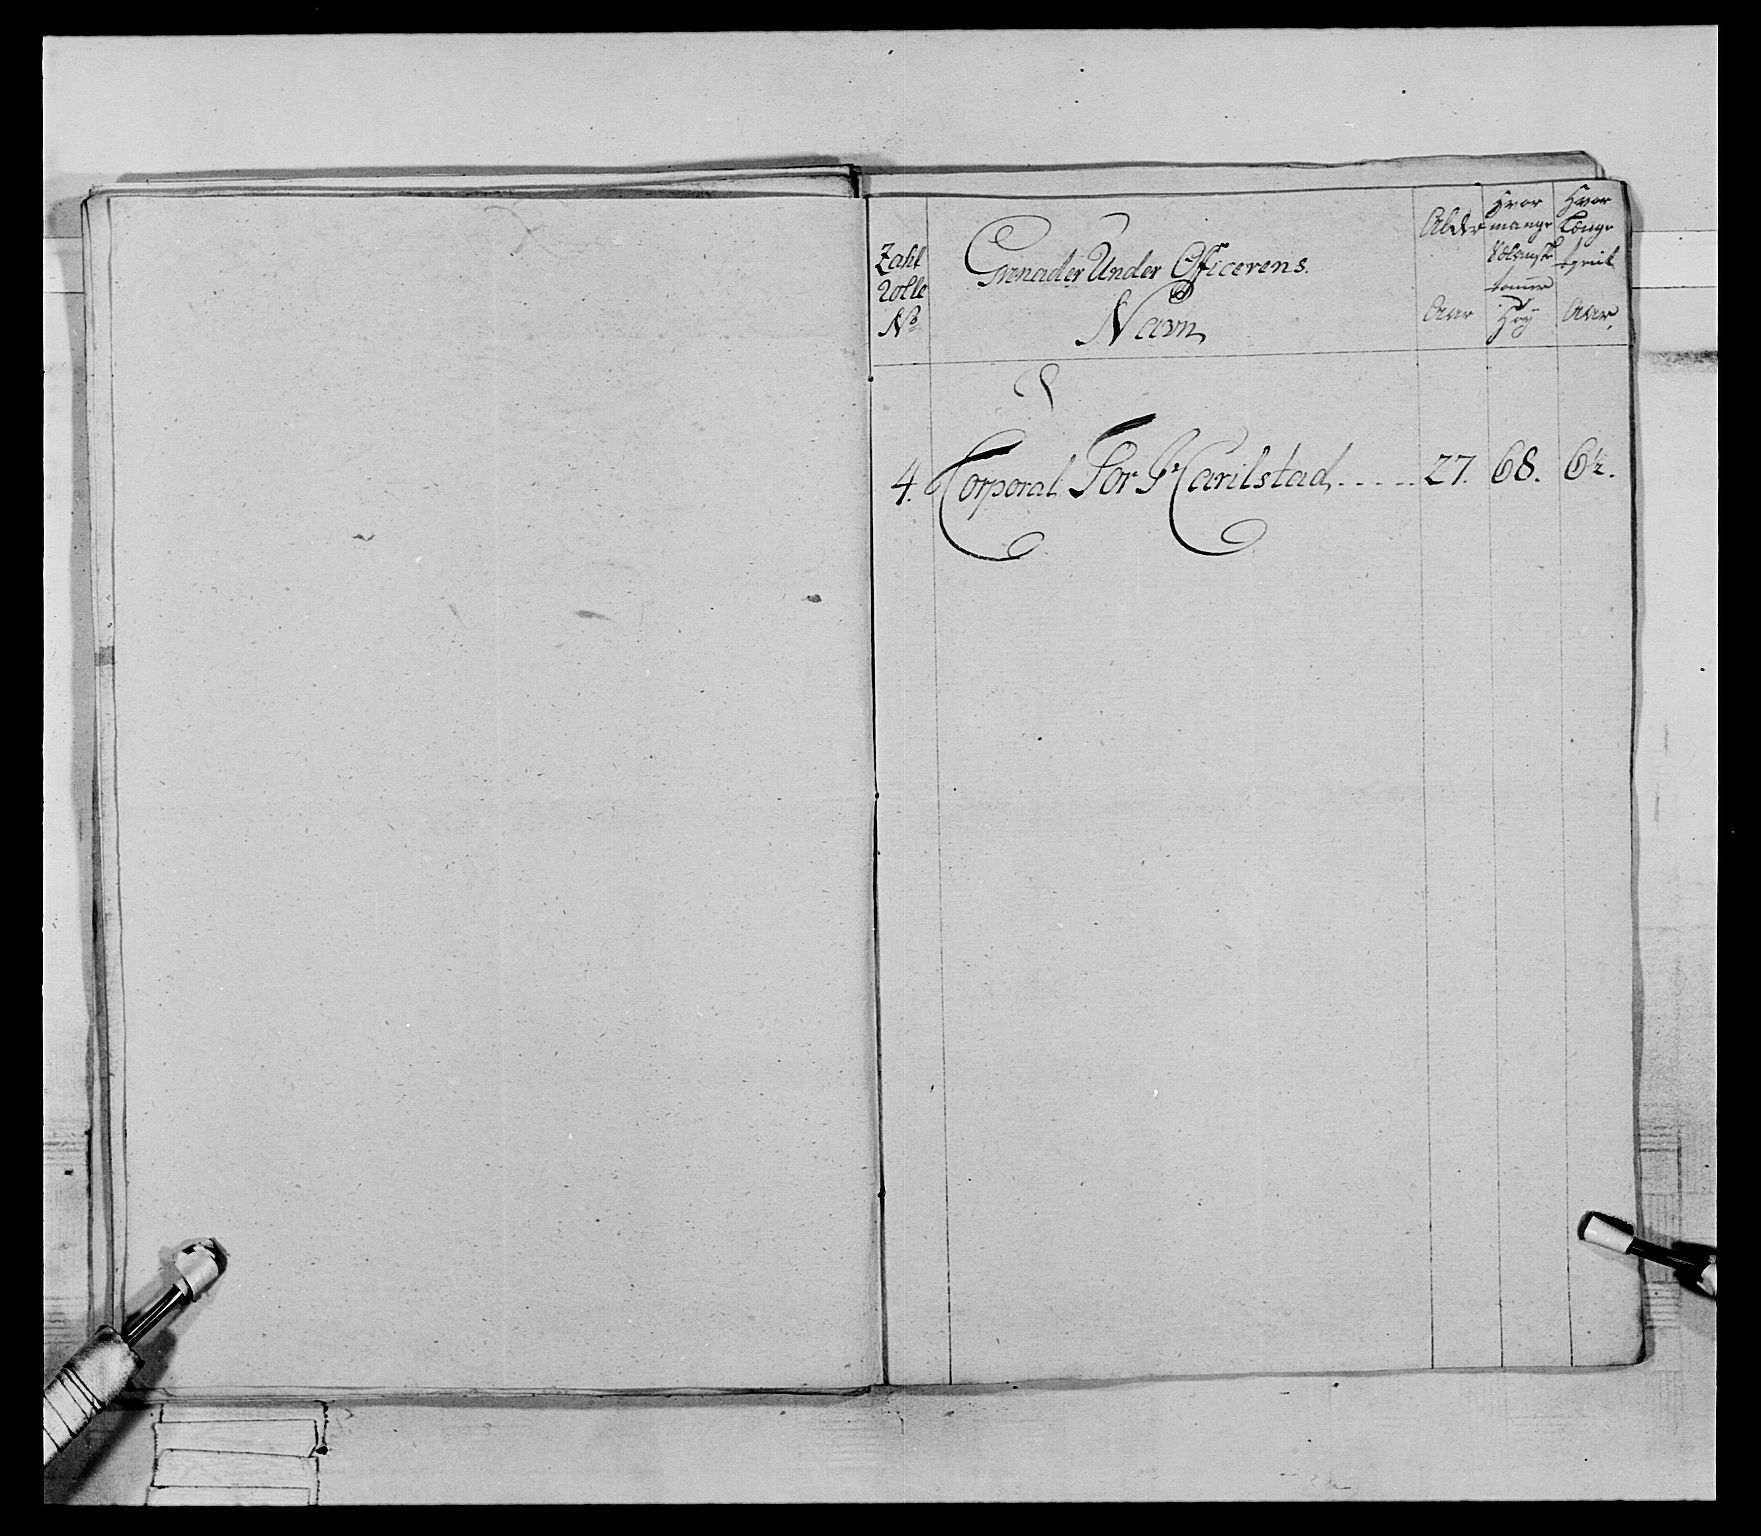 Zahl Rolle No
Grenader Under Officerens.
Navn
Alder
Aar
Hvor mange tommer Høy
Hvor Længe tient
Aar,
4. Corporal Tor Carilstad..... 27. 68. 6½.